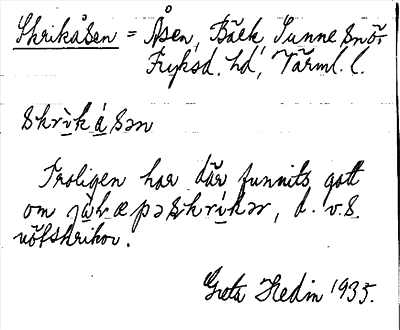 Skrikåsen = Åsen, Bäck, Sunne snö.
Fryksd. hd, Värml. l.
skrìkåsən
Troligen har där funnits gott
om skrikər, d. v. s.
nötskrikor.
Greta Hedin 1935.